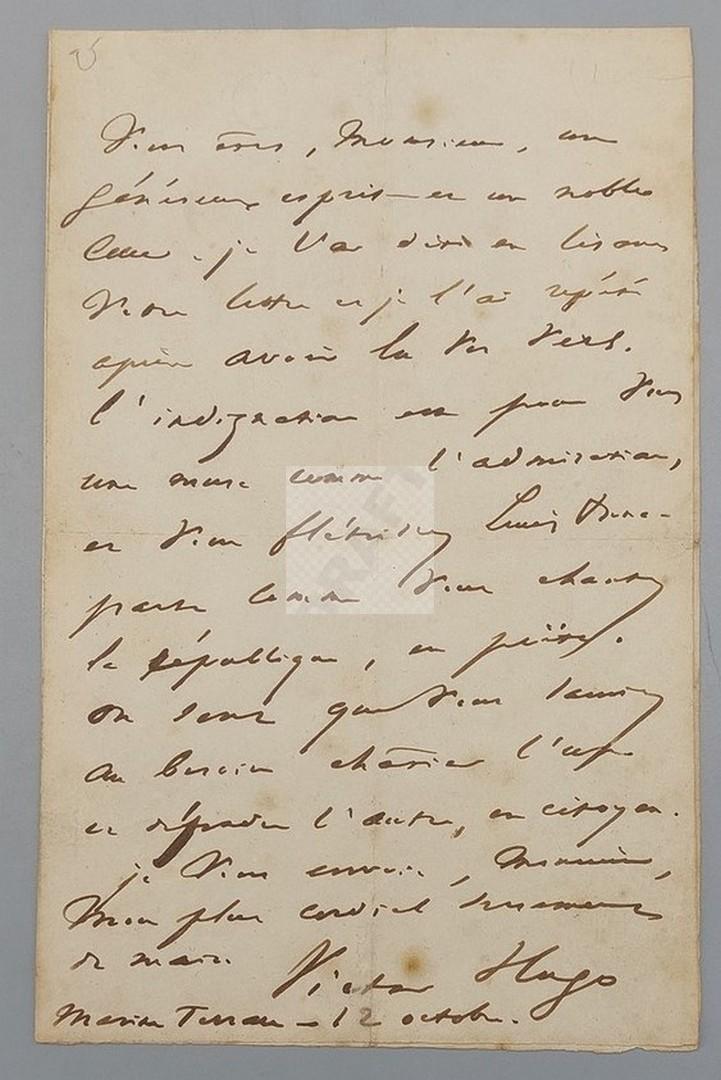 Vous êtes, Monsieur, un
généreux esprit et un noble
cœur. je l'ai dit en lisant
votre lettre et je l'ai répété
après avoir lu vos vers.
l'indignation est pour vous
une muse comme l'admiration,
et vous flétrissez Louis Bona-
parte comme vous chantez
la république, en poëte.
on sent que vous sauriez
au besoin châtier l'un
et défendre l'autre, en citoyen.
je vous envoie, Monsieur,
mon plus cordial serrement
de main.
Victor Hugo
Marine Terrace – 12 octobre.